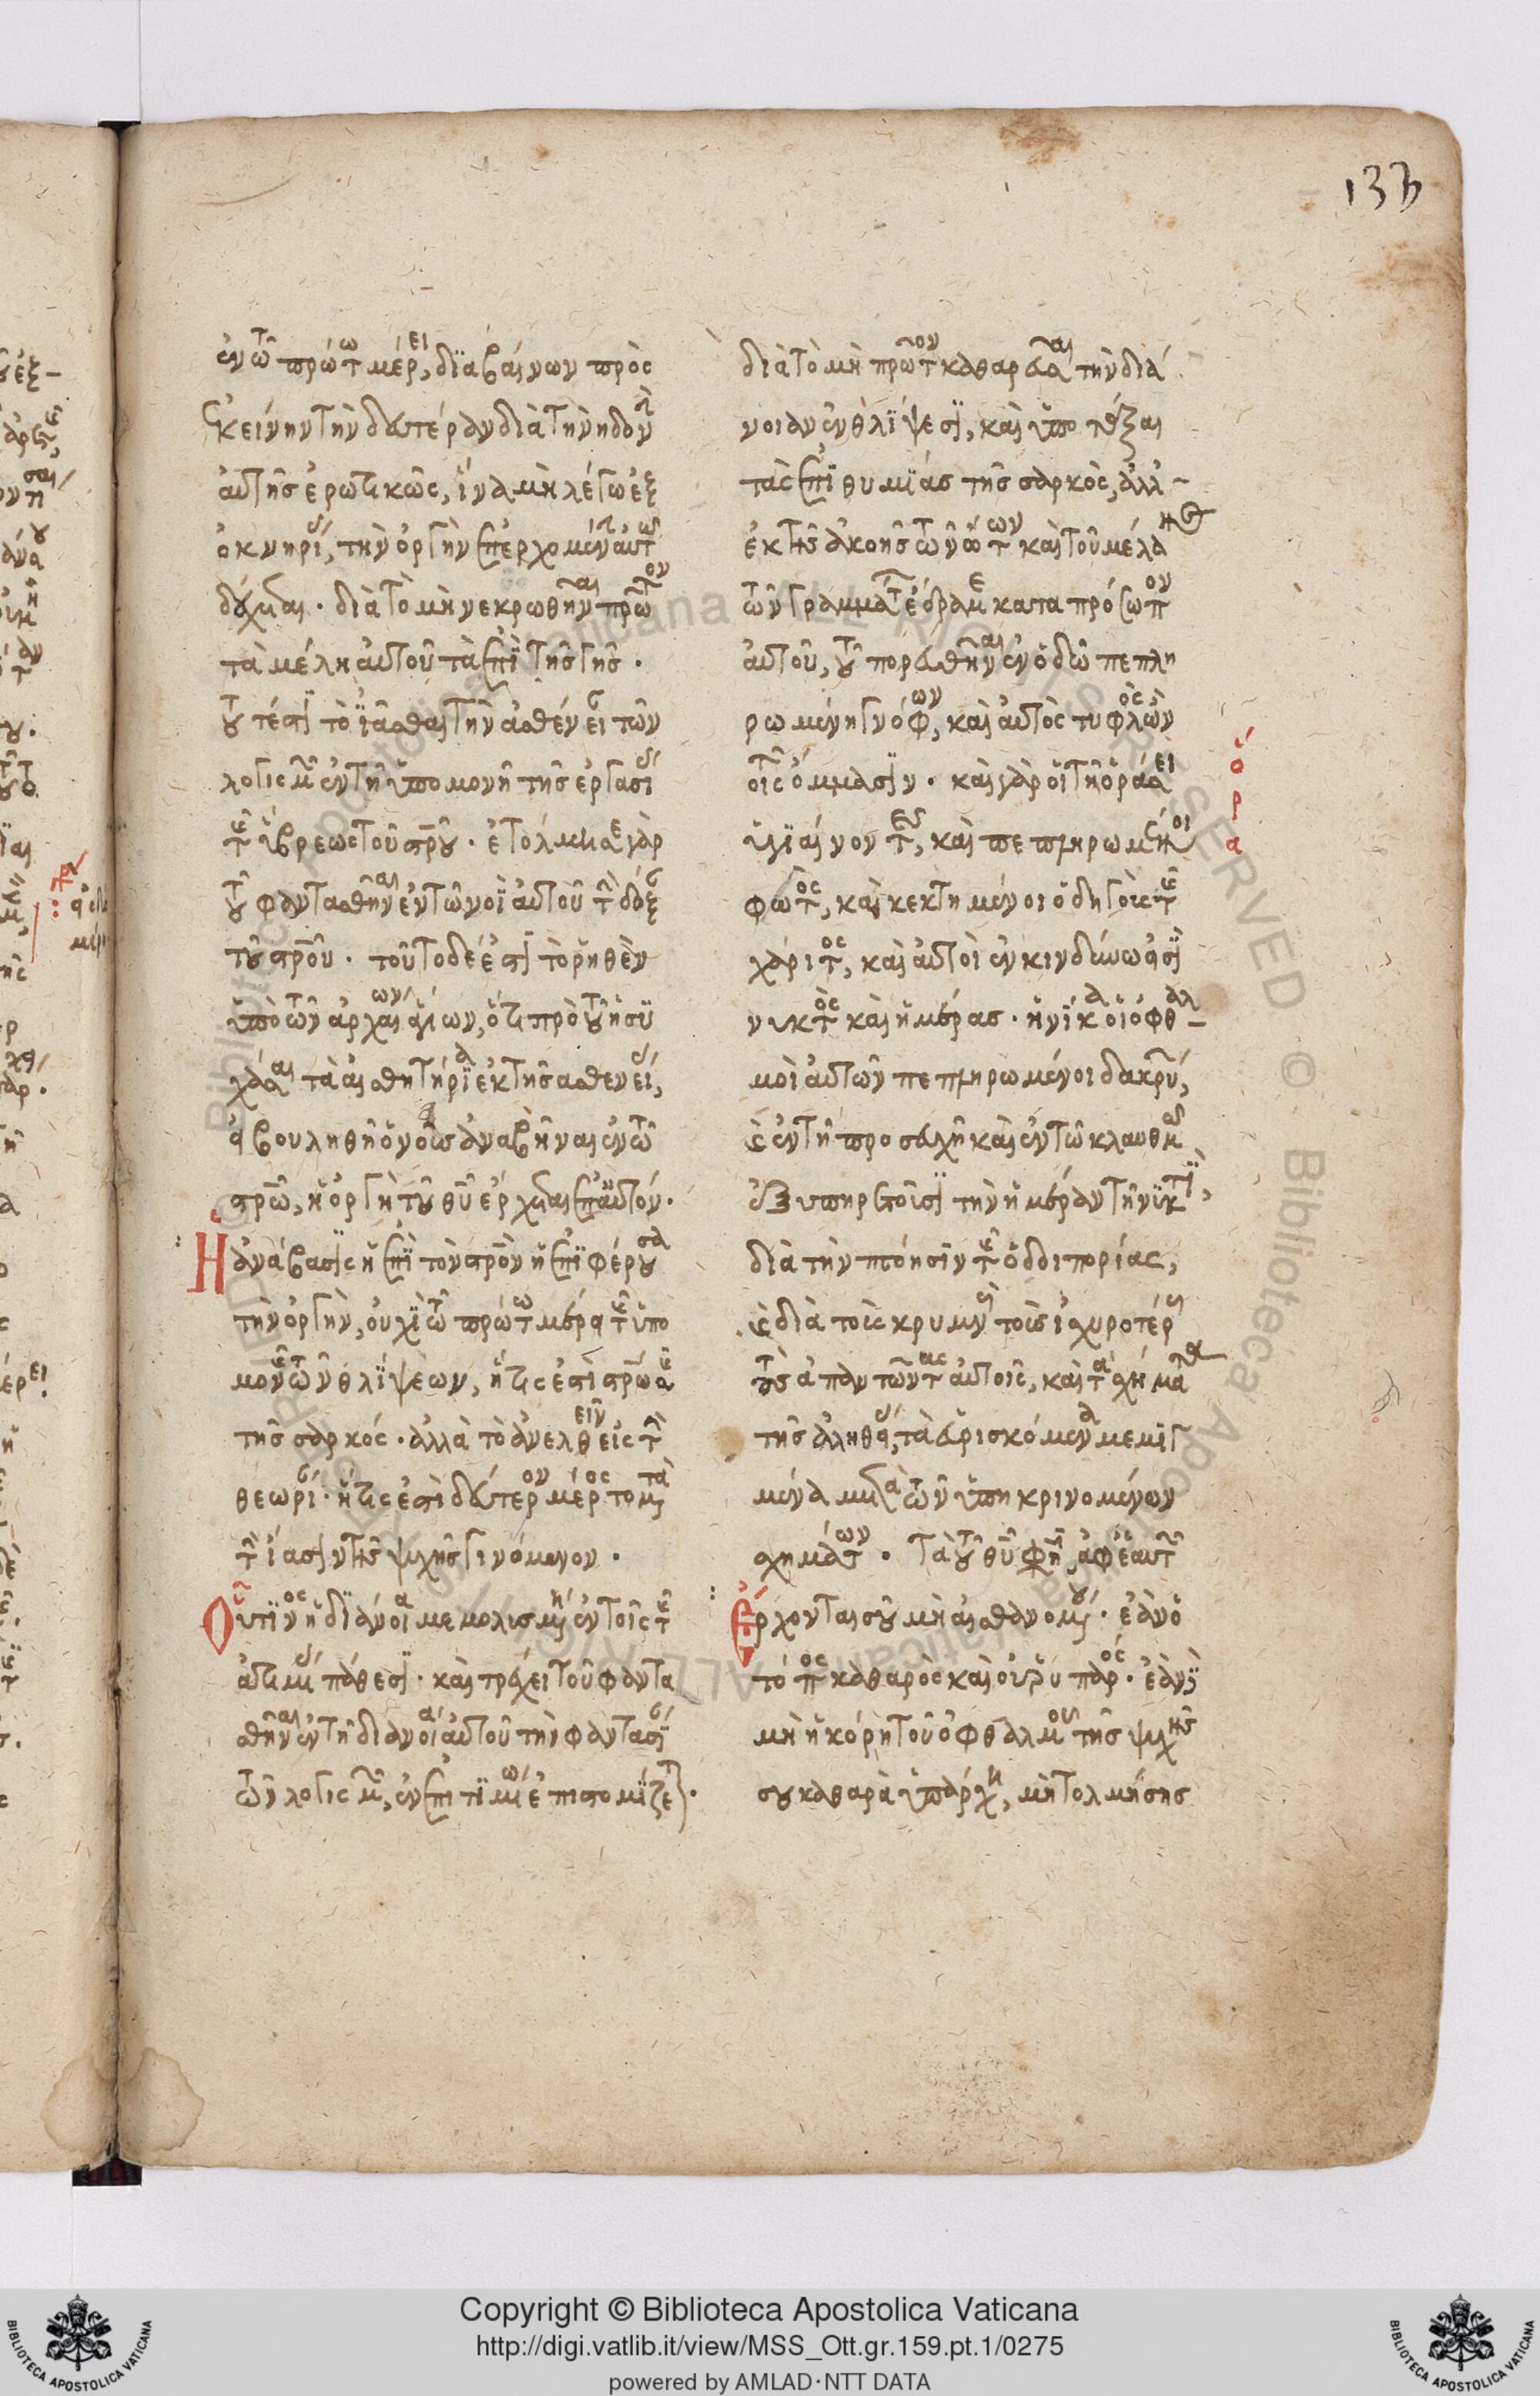 133
ἐν τῶ πρώτω μέρει, διαβαίνων πρὸς
ἐκείνην τὴν δευτέραν διὰ τὴν ἡδονὴν
αὐτῆς ἐρωτικῶς, ἵνα μὴ λέγω ἐξ
ὀκνηρίας, τὴν ὀργὴν ἐπερχομένην αὐτῶ
δέχεται. διὰ τὸ μὴ νεκρωθῆναι πρῶτον
τὰ μέλη αὐτοῦ τὰ ἐπὶ τῆς γῆς.
τουτέστι τὸ ἰάσασθαι τὴν ἀσθένειαν τῶν
λογισμῶν ἐν τῆ ὑπομονῆ τῆς ἐργασίας
τῆς ὕβρεως τοῦ σταυροῦ. ἐτόλμησε γὰρ
τοῦ φαντασθῆναι ἐν τῶ νοῒ αὐτοῦ τὴν δόξαν
τοῦ σταυροῦ. τοῦτο δέ ἐστι τὸ ῥηθὲν
ὑπὸ τῶν ἀρχαίων ἁγίων, ὅτι πρὸ τοῦ ἡσυ
χάσαι τὰ αἰσθητήρια ἐκ τῆς ἀσθενείας,
βουληθῆ ὁ νοῦς ἀναβῆναι ἐν τῶ
σταυρῶ, ἡ ὀργὴ τοῦ θεοῦ ἔρχεται ἐπ' αὐτόν.
Ἡ ἀνάβασις ἡ ἐπὶ τὸν σταυρὸν ἡ ἐπιφέρουσα
τὴν ὀργὴν, οὐχὶ τῶ πρώτω μέρει τῆς ὑπο
μονῆς τῶν θλίψεων, ἥτις ἐστὶ σταύρωσις
τῆς σαρκός. ἀλλὰ τὸ ἀνελθεῖν εἰς τὴν
θεωρίαν. ἥτις ἐστὶ δεύτερον μέρος τὸ μετὰ
τὴν ἴασιν τῆς ψυχῆς γινόμενον.
Οὗτινος ἡ διάνοια μεμολυσμένη ἐν τοῖς τῆς
ἀτιμίας πάθεσι. καὶ τρέχει τοῦ φαντα
σθῆναι ἐν τῆ διανοία αὐτοῦ τὴν φαντασίαν
τῶν λογισμῶν, ἐν ἐπιτιμίω ἐπιστομίζεται.
διὰ τὸ μὴ πρῶτον καθαρεῦσαι τὴν διά
νοιαν ἐν θλίψεσι, καὶ ὑποτάξαι
τὰς ἐπιθυμίας τῆς σαρκὸς, ἀλλ
ἐκ τῆς ἀκοῆς τῶν ὤτων καὶ τοῦ μέλανος
τῶν γραμμάτων ἔδραμε κατὰ πρόσωπον
αὐτοῦ, τοῦ πορευθῆναι ἐν ὁδῶ πεπλη
ρωμένη γνόφων, καὶ αὐτὸς τυφλὸς ὢν
τοῖς ὄμμασιν. καὶ γὰρ οἱ τῆ ὁράσει
ὑγιαίνοντες, καὶ πεπληρωμένοι
φωτὸς, καὶ κεκτημένοι ὁδηγοὺς τῆς
χάριτος, καὶ αὐτοὶ ἐν κινδύνω εἰσὶ
νυκτὸς καὶ ἡμέρας. ἡνίκα οἱ ὀφθαλ
μοὶ αὐτῶν πεπληρωμένοι δακρύων,
καὶ ἐν τῆ προσευχῆ καὶ ἐν τῶ κλαυθμῶ
ἐξυπηρετοῦσι τὴν ἡμέραν τῆ νυκτί,
διὰ τὴν πτόησιν τῆς ὁδοιπορίας,
καὶ διὰ τοὺς κρημνοὺς τοὺς ἰσχυροτέρους
τοὺς ἀπαντῶντας αὐτοῖς, καὶ τὰ σχήματα
τῆς ἀληθείας, τὰ εὑρισκόμενα μεμιγ
μένα μετὰ τῶν ὑποκρινομένων
σχημάτων. Τὰ τοῦ θεοῦ φησὶν ἀφ' ἑαυτῶν
Ἔρχονται σοῦ μὴ αἰσθανομένου. ἐὰν ὁ
τόπος καθαρὸς καὶ οὐ ῥυπαρός. ἐὰν
μὴ ἡ κόρη τοῦ ὀφθαλμοῦ τῆς ψυχῆς
σου καθαρὰ ὑπάρχη, μὴ τολμήσης
ὅρα
Copyright © Biblioteca Apostolica Vaticana
http://digi.vatlib.it/view/MSS_Ott.gr.159.pt.1/0275
powered by AMLAD·NTT DATA